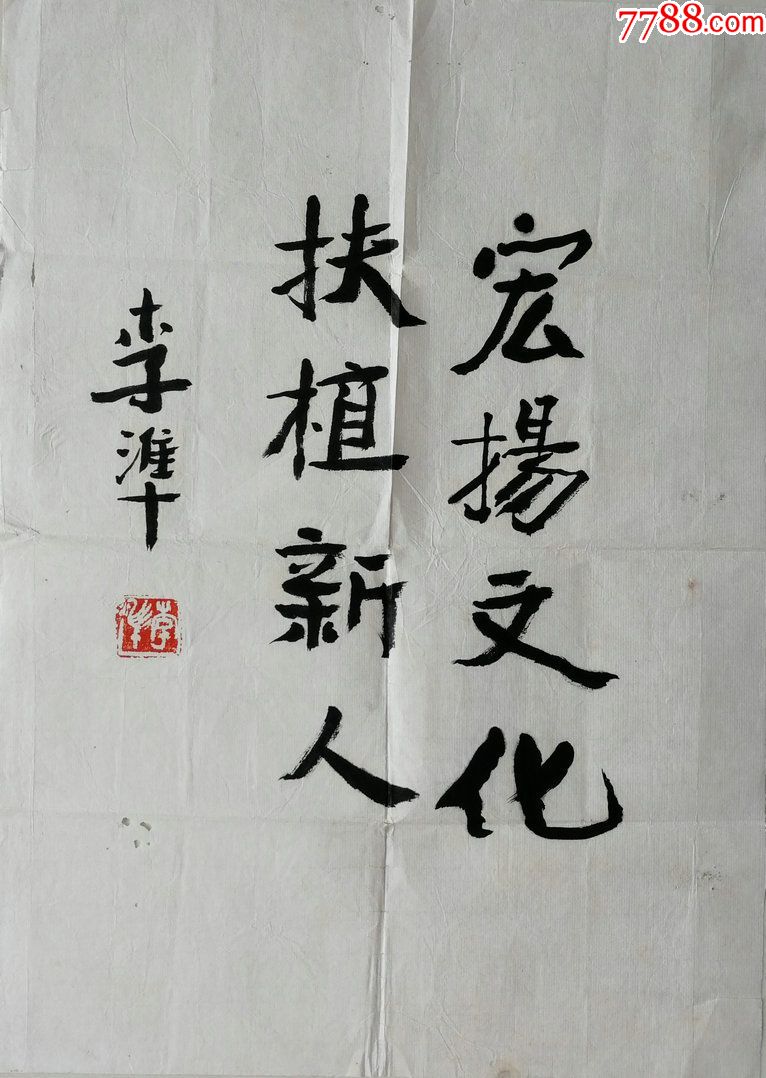 7788.com
宏揚文化
扶植新人
李準